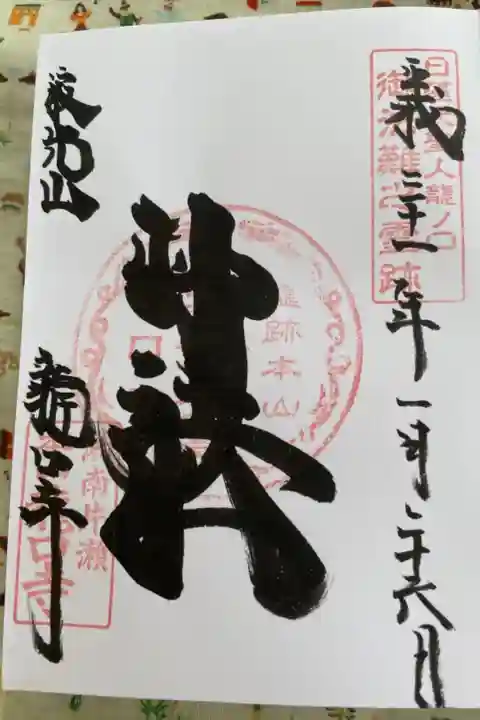 日蓮大聖人龍ノ口
御法難之霊跡
平成三十一年一月二十六日
霊跡本山
寂光山
龍口寺
湘南片瀬
龍口寺